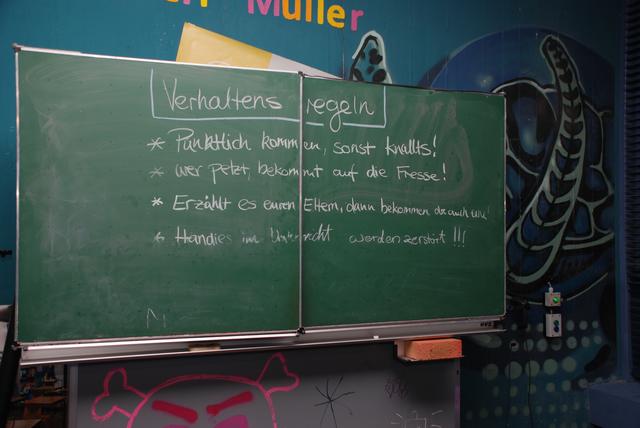 Müller
Verhaltensregeln
* Pünktlich kommen, sonst knallts!
* wer petzt, bekommt auf die Fresse!
* Erzählt es euren Eltern, dann bekommen die auch
* Handies im Unterricht werden zerstört !!!